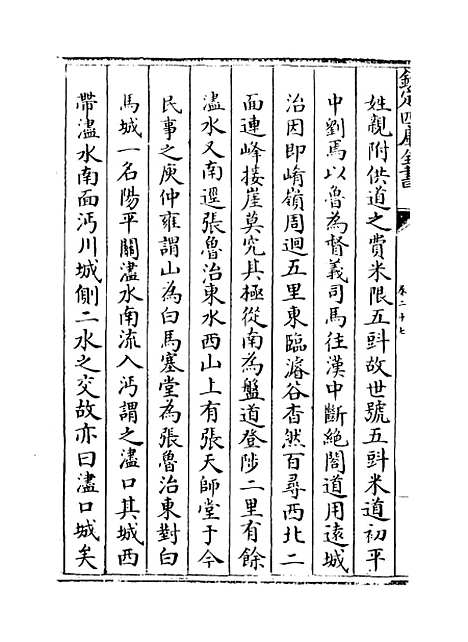 欽定四庫全書
卷二十七
姓親附供道之費米限五㪷故世號五㪷米道初平
中劉焉以魯為督義司馬往漢中斷絕閣道用逺城
治因即崤嶺周迴五里東臨濬谷杳然百尋西北二
面連峰接崖莫究其極從南為盤道登陟二里有餘
濜水又南逕張魯治東水西山上有張天師堂于今
民事之庾仲雍謂山為白馬塞堂為張魯治東對白
馬城一名陽平關濜水南流入沔謂之濜口其城西
帶濜水南面沔川城側二水之交故亦曰濜口城矣